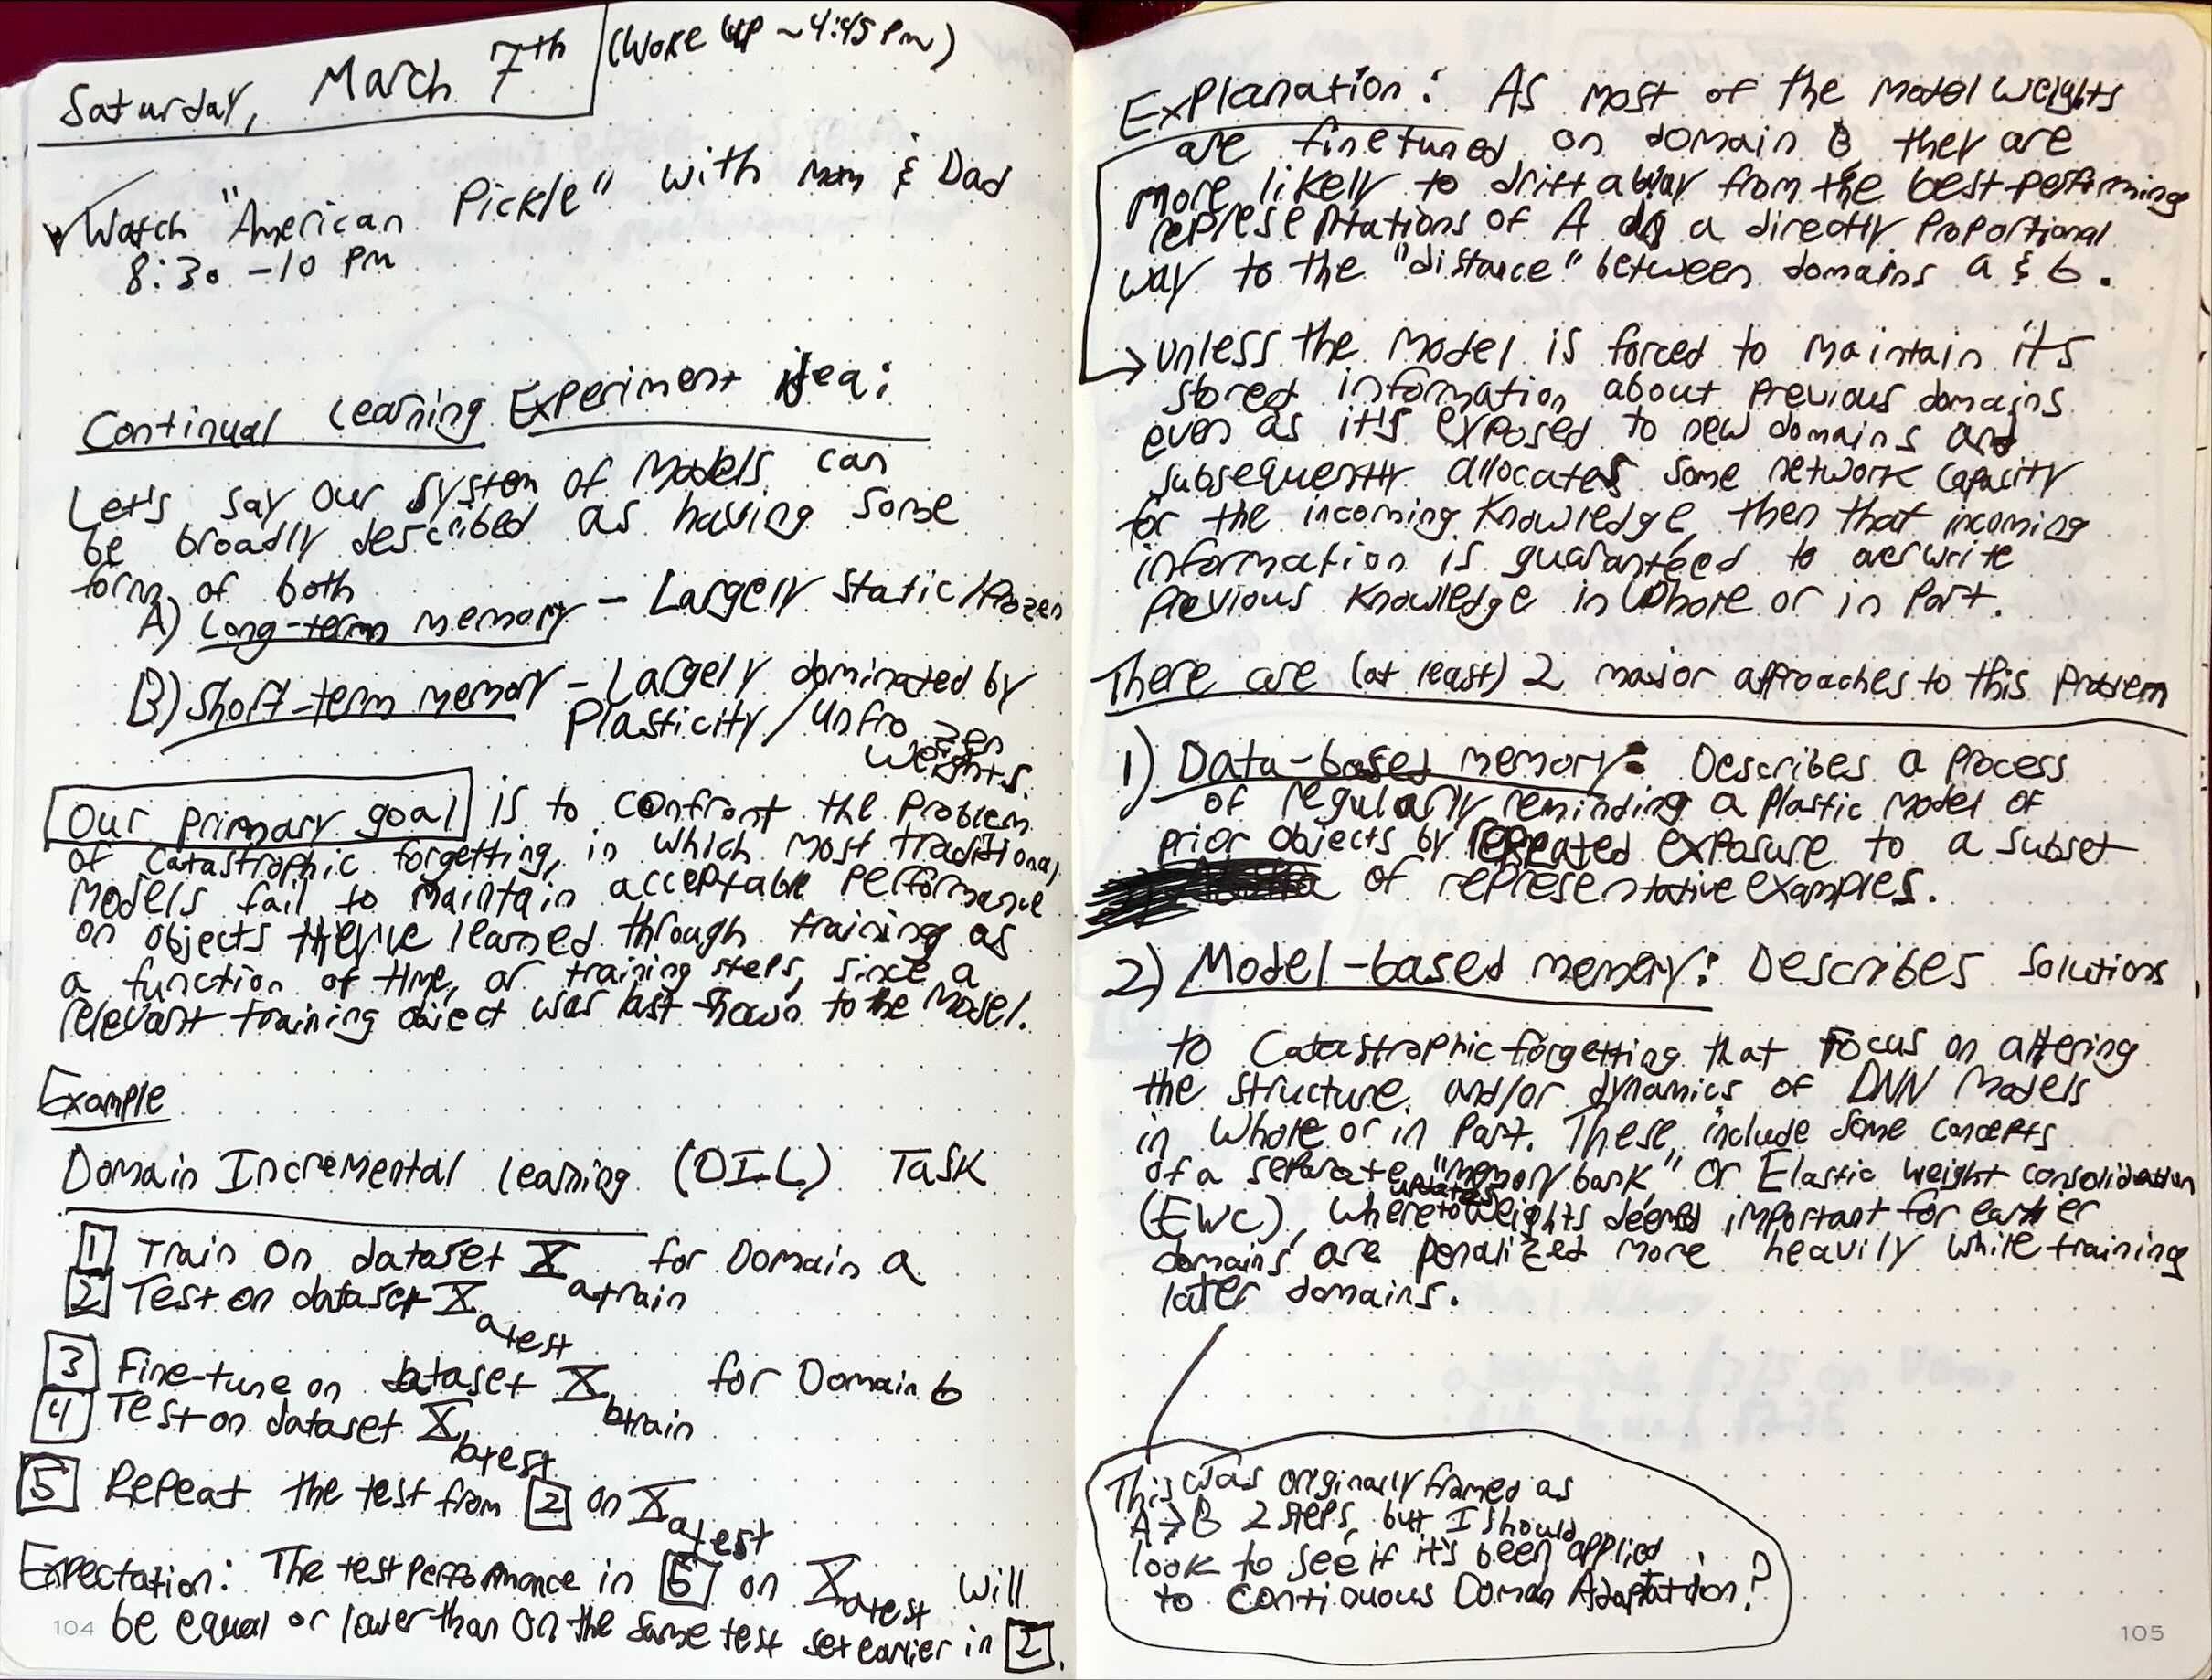 Saturday, March 7th (Woke up ~4:45 pm)
Watch "American Pickle" with mom & Dad
8:30 - 10 pm
Continual Learning Experiment idea:
Let's say our system of Models can
be broadly described as having some
form of both
A) Long-term memory - Largely static/frozen
B) Short-term memory - Largely dominated by
Plasticity / unfrozen
weights.
Our primary goal is to confront the problem
of catastrophic forgetting, in which most traditional
Models fail to maintain acceptable performance
on objects they've learned through training as
a function of time, or training steps, since a
relevant training object was last shown to the Model.
Example
Domain Incremental Learning (DIL) Task
1 Train on dataset X a train for Domain a
2 Test on dataset X a test
3 Fine-tune on dataset X b train for Domain b
4 Test on dataset X b test
5 Repeat the test from 2 on X a test
Expectation: The test performance in 5 on X a test will
be equal or lower than on the same test set earlier in 2.
104
Explanation: As most of the model weights
are finetuned on domain B, they are
more likely to drift away from the best-performing
representations of A in a directly proportional
way to the "distance" between domains a & b.
→ unless the model is forced to maintain it's
stored information about previous domains
even as it's exposed to new domains and
subsequently allocates some network capacity
for the incoming knowledge, then that incoming
information is guaranteed to overwrite
previous knowledge in whole or in part.
There are (at least) 2 major approaches to this problem
1) Data-based memory: Describes a process
of regularly reminding a plastic model of
prior objects by repeated exposure to a subset
of representative examples.
2) Model-based memory: Describes solutions
to Catastrophic forgetting that focus on altering
the structure and/or dynamics of DNN Models
in whole or in part. These include some concepts
of a separate "memory bank" or Elastic weight consolidation
(EWC), where updates to weights deemed important for earlier
domains are penalized more heavily while training
later domains.
This was originally framed as
A→B 2 steps, but I should
look to see if it's been applied
to Continuous Domain Adaptation?
105